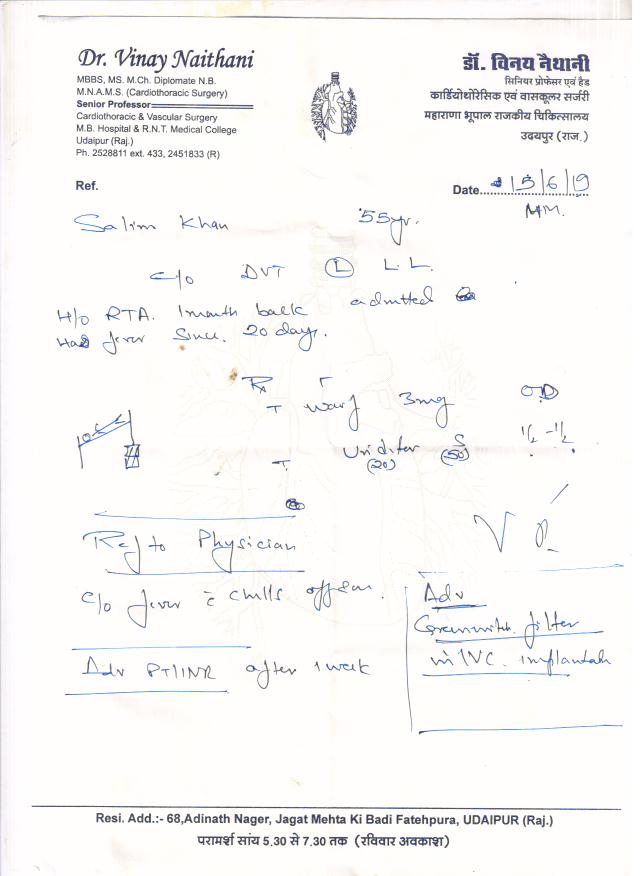 Dr. Vinay Naithani
MBBS, MS. M.Ch. Diplomate N.B.
M.N.A.M.S. (Cardiothoracic Surgery)
Senior Professor
Cardiothoracic & Vascular Surgery
M.B. Hospital & R.N.T. Medical College
Udaipur (Raj.)
Ph. 2528811 ext. 433, 2451833 (R)
डॉ. विनय नैथानी
सिनियर प्रोफेसर एवं हैड
कार्डियोथोरेसिक एवं वासकूलर सर्जरी
महाराणा भूपाल राजकीय चिकित्सालय
उदयपुर (राज.)
Ref.
Date 15/6/19
Salim Khan 55yr.
c/o DVT (L) L.L.
admitted
H/o RTA. 1 month back
Had fever since. 20 days.
Rx
T warf 3mg OD
T. (20) (50) 1/2 - 1/2
Ref to Physician
c/o fever c chills off & on.
Adv PT/INR after 1 week
Adv
filter
in IVC.
Resi. Add.:- 68,Adinath Nager, Jagat Mehta Ki Badi Fatehpura, UDAIPUR (Raj.)
परामर्श सांय 5.30 से 7.30 तक (रविवार अवकाश)